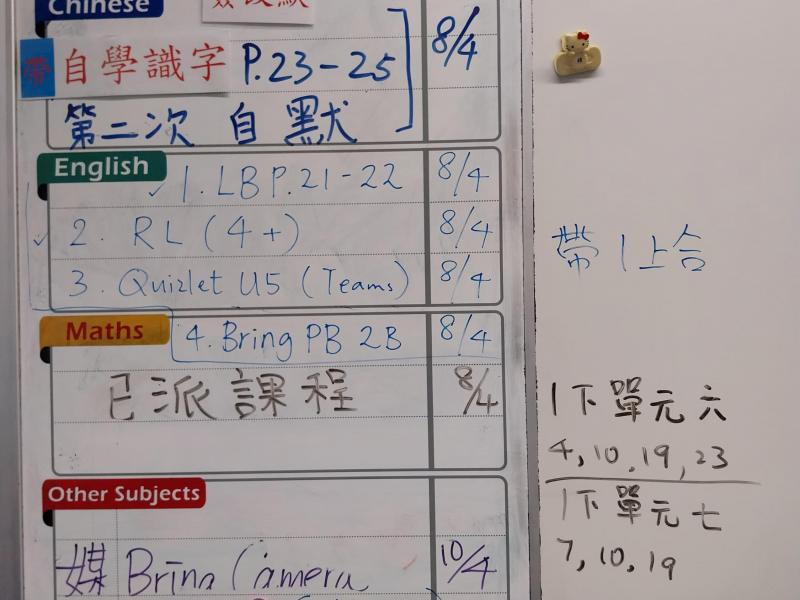 Chinese
帶 自學識字 P.23-25 8/4
第二次 自默
English
1. LB P.21-22 8/4
2. RL (4+) 8/4
3. Quizlet U5 (Teams) 8/4
Maths
4. Bring PB 2B 8/4
已派課程 8/4
Other Subjects
媒 Bring Camera 10/4
帶 1上合
1下單元六
4, 10, 19, 23
1下單元七
7, 10, 19